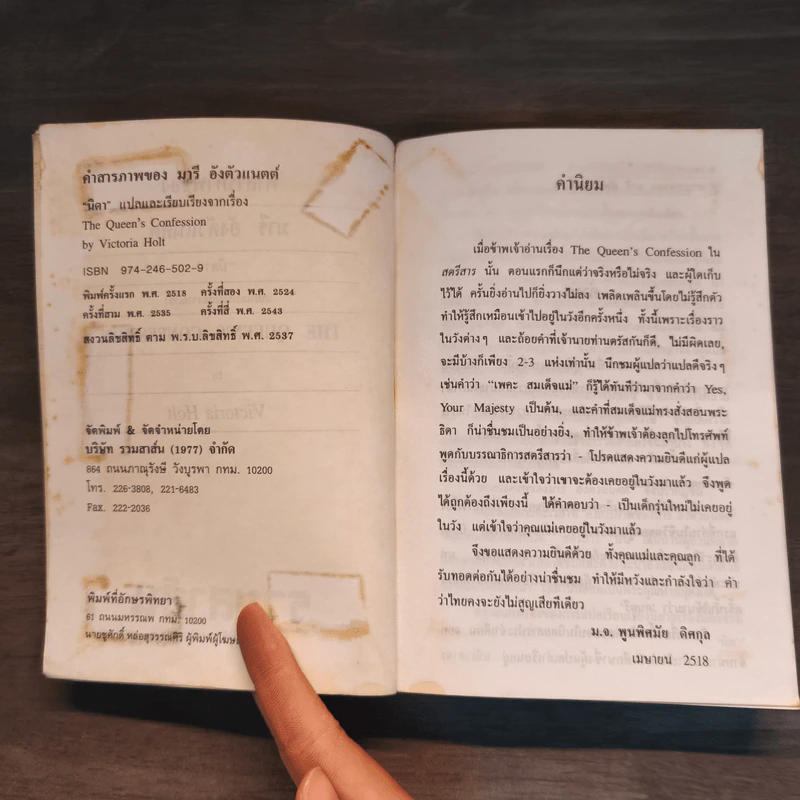 คำสารภาพของ มารี อังตัวแนตต์
"นิดา" แปลและเรียบเรียงจากเรื่อง
The Queen's Confession
by Victoria Holt
ISBN 974-246-502-9
พิมพ์ครั้งแรก พ.ศ. 2518 ครั้งที่สอง พ.ศ. 2524
ครั้งที่สาม พ.ศ. 2535 ครั้งที่สี่ พ.ศ. 2543
สงวนลิขสิทธิ์ ตาม พ.ร.บ.ลิขสิทธิ์ พ.ศ. 2537
Victoria Holt
จัดพิมพ์ & จัดจำหน่ายโดย
บริษัท รวมสาส์น (1977) จำกัด
864 ถนนภาณุรังษี วังบูรพา กทม. 10200
โทร. 226-3808, 221-6483
Fax. 222-2036
พิมพ์ที่อักษรพิทยา
61 ถนนมหรรณพ กทม. 10200
นายชูศักดิ์ หล่อสุวรรณศิริ ผู้พิมพ์ผู้โฆษ
คำนิยม
เมื่อข้าพเจ้าอ่านเรื่อง The Queen's Confession ใน
สตรีสาร นั้น ตอนแรกก็นึกแต่ว่าจริงหรือไม่จริง และผู้ใดเก็บ
ไว้ได้ ครั้นยิ่งอ่านไปก็ยิ่งวางไม่ลง เพลิดเพลินขึ้นโดยไม่รู้สึกตัว
ทำให้รู้สึกเหมือนเข้าไปอยู่ในวังอีกครั้งหนึ่ง ทั้งนี้เพราะเรื่องราว
ในวังต่างๆ และถ้อยคำที่เจ้านายท่านตรัสกันก็ดี, ไม่มีผิดเลย,
จะมีบ้างก็เพียง 2-3 แห่งเท่านั้น นึกชมผู้แปลว่าแปลดีจริงๆ
เช่นคำว่า "เพคะ สมเด็จแม่" ก็รู้ได้ทันทีว่ามาจากคำว่า Yes,
Your Majesty เป็นต้น, และคำที่สมเด็จแม่ทรงสั่งสอนพระ
ธิดา ก็น่าชื่นชมเป็นอย่างยิ่ง, ทำให้ข้าพเจ้าต้องลุกไปโทรศัพท์
พูดกับบรรณาธิการสตรีสารว่า - โปรดแสดงความยินดีแก่ผู้แปล
เรื่องนี้ด้วย และเข้าใจว่าเขาจะต้องเคยอยู่ในวังมาแล้ว จึงพูด
ได้ถูกต้องถึงเพียงนี้ ได้คำตอบว่า - เป็นเด็กรุ่นใหม่ไม่เคยอยู่
ในวัง แต่เข้าใจว่าคุณแม่เคยอยู่ในวังมาแล้ว
จึงขอแสดงความยินดีด้วย ทั้งคุณแม่และคุณลูก ที่ได้
รับทอดต่อกันได้อย่างน่าชื่นชม ทำให้มีหวังและกำลังใจว่า คำ
ว่าไทยคงจะยังไม่สูญเสียทีเดียว
ม.จ. พูนพิศมัย ดิศกุล
เมษายน 2518